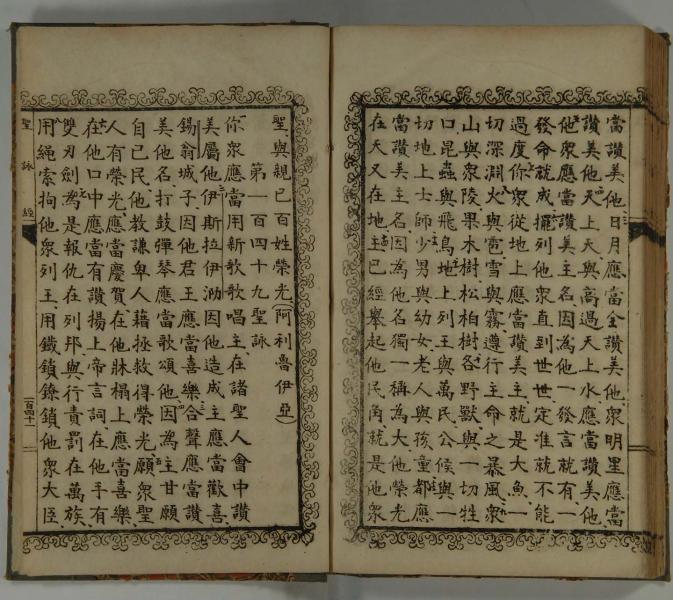 當讚美他日月應當全讚美他眾明星應當
讚美他天上天與高過天上水應當讚美他
他眾應當讚美主名因為他一發言就有一
發命就成擺列他眾直到世世定准就不能
過度你眾從地上應當讚美主就是大魚一
切深淵火與雹雪與霧遵行主命之暴風眾
山與眾陵果木樹松柏樹各野獸與一切牲
口昆蟲與飛鳥地上列王與萬民公候與一
切地上士師少男與幼女老人與孩童都應
當讚美主名因為他名獨一稱為大他榮光
在天又在地主已經舉起他民角就是他眾
聖與親己百姓榮光(阿利魯伊亞)
第一百四十九聖詠
你眾應當用新歌歌唱主在諸聖人會中讚
美屬他伊斯拉伊泐因他造成主應當歡喜
錫翁城子因他君王應當喜樂合聲應當讚
美他名打鼓彈琴應當歌頌他因為主甘願
自己民他教謙卑人藉拯救得榮光願眾聖
人有榮光應當慶賀在他牀榻上應當喜樂
在他口中應當有讚揚上帝言詞在他手有
雙刃劍為是報仇在列邦與行責罰在萬族
用繩索拘他眾列王用鐵鎖鐐鎖他眾大臣
聖詠經
一百四十